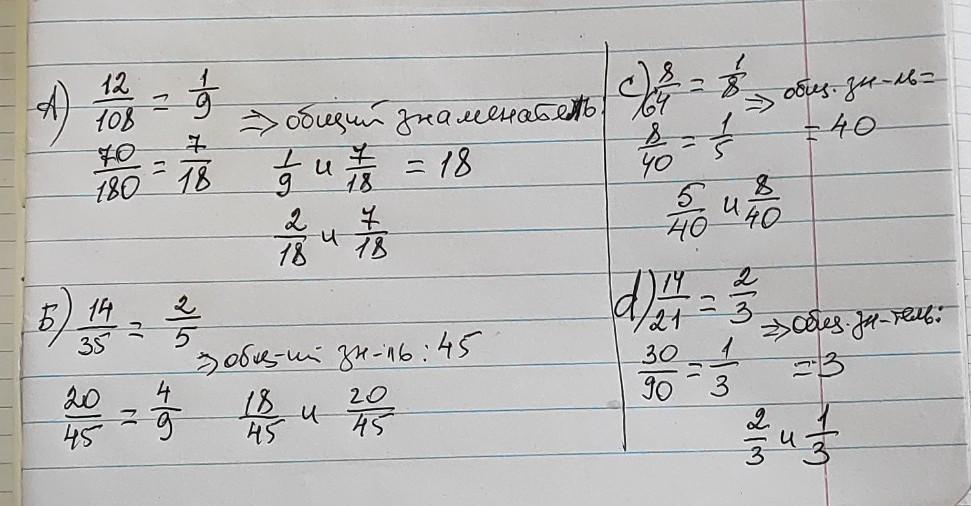 А) 12/108 = 1/9 ⇒ общий знаменатель
70/180 = 7/18 1/9 и 7/18 = 18
2/18 и 7/18
Б) 14/35 = 2/5 ⇒ общ-ий зн-ль: 45
20/45 = 4/9 18/45 и 20/45
c) 8/64 = 1/8 ⇒ общ. зн-ль =
8/40 = 1/5 = 40
5/40 и 8/40
d) 14/21 = 2/3 ⇒ общ. зн-тель:
30/90 = 1/3 = 3
2/3 и 1/3